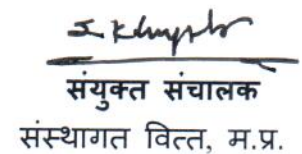 संयुक्त संचालक
संस्थागत वित्त, म.प्र.